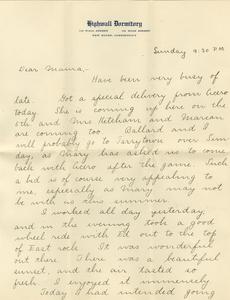 Highwall Dormitory
NEW HAVEN, CONNECTICUT
Sunday 9:30 P.M.
Dear Mama,-
Have been very busy of
late. Got a special delivery from Cicero
today. She is coming up here on the
5th and Mrs Ketcham and Marion
are coming too. Ballard and I
will probably go to Tarrytown over Sun
day, as Mary has asked us to come
back with Cicero after the game. Such
a bid is of course very appealing to
me, especially as Mary may not
be with us this summer.
I worked all day yesterday,
and in the evening took a good
wheel ride with Ell out to the top
of East rock. It was wonderful
out there. There was a beautiful
sunset, and the air tasted so
fresh. I enjoyed it immensely
Today I had intended going